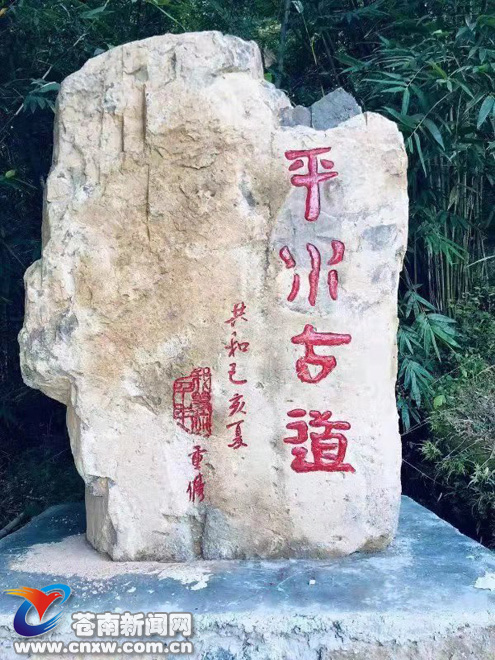 平州古道
共和己亥夏
重修
苍南新闻网
www.cnxw.com.cn